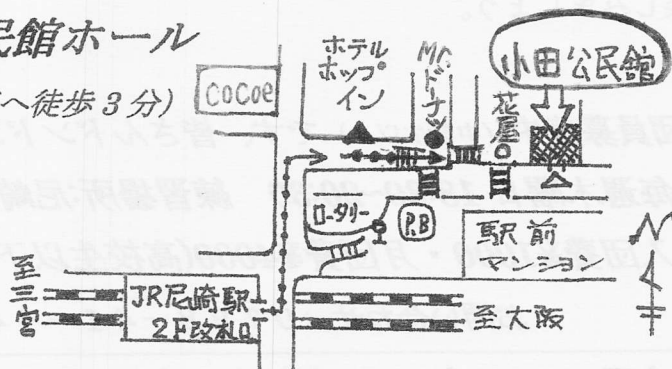 民館ホール
へ徒歩3分)
cocoe
ホテル
ホップ
イン
Mr.ドーナツ
花屋
小田公民館
ロータリー
P.B
駅前
マンション
N
至三宮
JR尼崎駅
2F改札口
至大阪